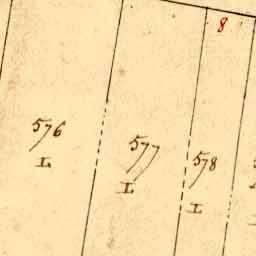 8
576
L
577
I
578
I